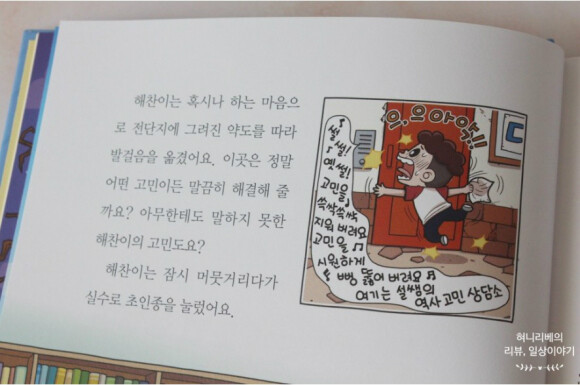 해찬이는 혹시나 하는 마음으
로 전단지에 그려진 약도를 따라
발걸음을 옮겼어요. 이곳은 정말
어떤 고민이든 말끔히 해결해 줄
까요? 아무한테도 말하지 못한
해찬이의 고민도요?
해찬이는 잠시 머뭇거리다가
실수로 초인종을 눌렀어요.
으, 으아악!!
♪ 썰~
♪ 썰!
옛썰!
고민을♪
쓱싹쓱싹
지워 버려요
고민을♪
시원하게
♪ 뻥 뚫어 버려요♬
여기는 설쌤의
역사 고민 상담소
허니리베의
리뷰, 일상이야기